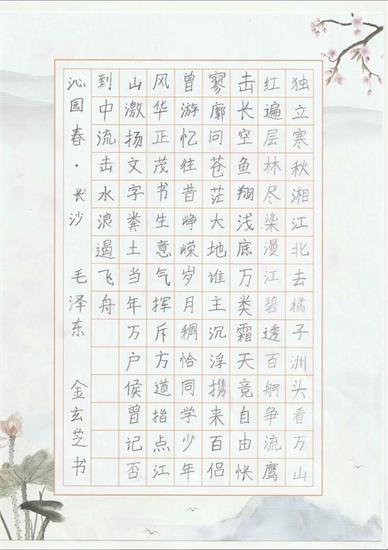 独立寒秋湘江北去橘子洲头看万山
红遍层林尽染漫江碧透百舸争流鹰
击长空鱼翔浅底万类霜天竞自由怅
寥廓问苍茫大地谁主沉浮携来百侣
曾游忆往昔峥嵘岁月稠恰同学少年
风华正茂书生意气挥斥方道指点江
山激扬文字粪土当年万户侯曾记否
到中流击水浪遏飞舟
沁园春·长沙 毛泽东 金玄芝书